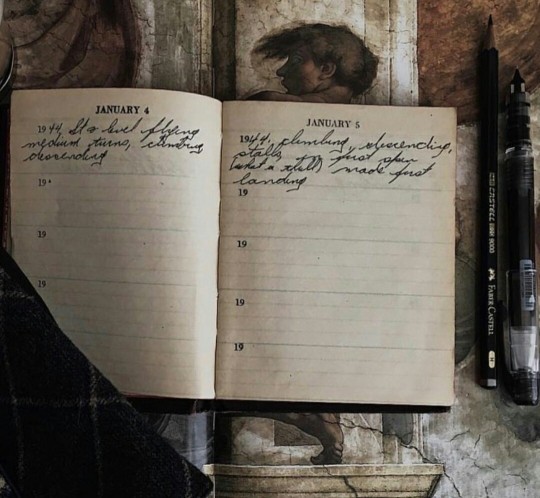 JANUARY 4
1944, St & level flying
medium turns, climbing
descending
19
19
19
JANUARY 5
1944, climbing, descending,
stalls, first spin
(what a thrill) made first
landing
19
19
19
19
CASTELL 9000
FABER-CASTELL